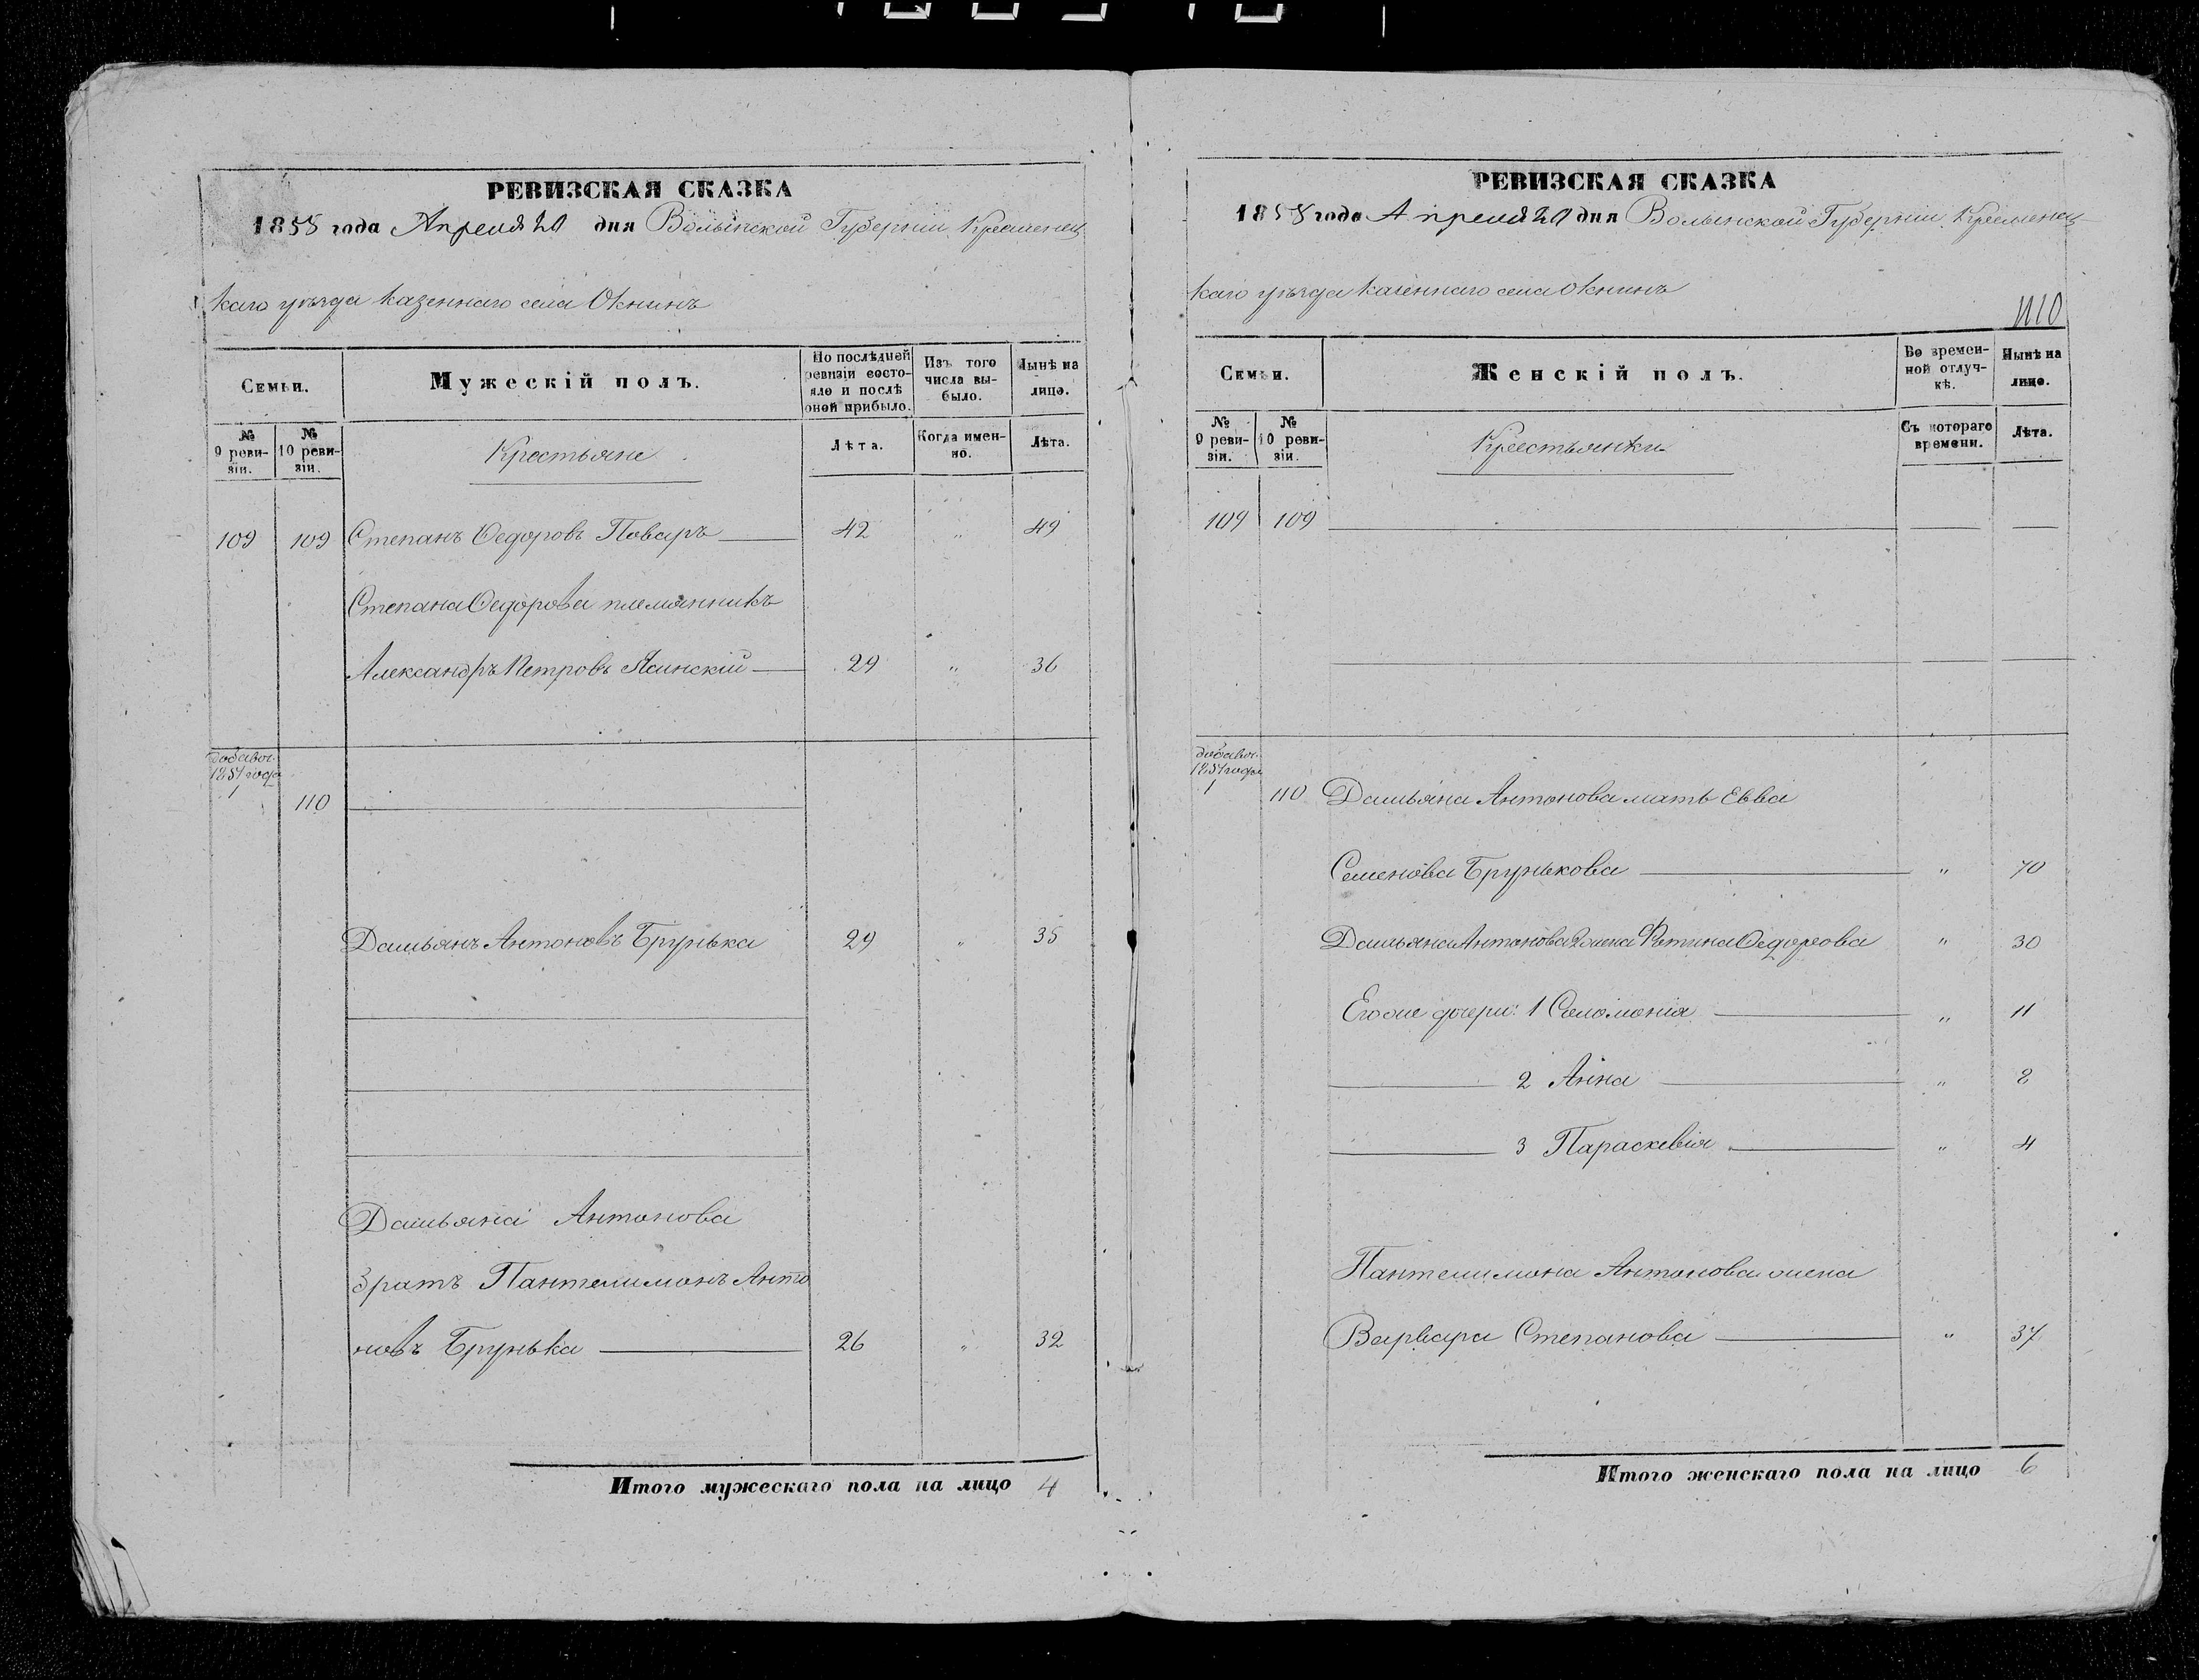 РЕВИЗСКАЯ СКАЗКА
1858 года Апреля 20 дня Волынской Губерніи Кременец
каго уѣзда казеннаго села Окнинъ
Семьи.
Мужескій полъ.
По послѣдней ревизіи состояло и послѣ оной прибыло.
Изъ того числа выбыло.
Нынѣ на лицо.
№ 9 ревизіи.
№ 10 ревизіи.
Крестьяне
Лѣта.
Когда именно.
Лѣта.
109 109 Степанъ Федоровъ Поваръ 42 " 49
Степана Федорова племянникъ
Александръ Петровъ Ясинскій 29 " 36
добавоч.
1851 года
1 110
Дамьянъ Антоновъ Брунька 29 " 35
Дамьяна Антонова
братъ Пантелимонъ Анто
новъ Брунька 26 " 32
Итого мужескаго пола на лицо 4
РЕВИЗСКАЯ СКАЗКА
1858 года Апреля 20 дня Волынской Губерніи Кременец
каго уѣзда казеннаго села Окнинъ
110
Семьи.
Женскій полъ.
Во временной отлучкѣ.
Нынѣ на лицо.
№ 9 ревизіи.
№ 10 ревизіи.
Крестьянки
Съ котораго времени.
Лѣта.
109 109
добавоч.
1851 года
1 110 Дамьяна Антонова мать Евва
Семенова Брунькова " 70
Дамьяна Антонова жена Фотина Федорова " 30
Егоже дочери: 1 Соломонія " 11
2 Анна " 8
3 Параскевія " 4
Пантелимона Антонова жена
Варвара Степанова " 37
Итого женскаго пола на лицо 6